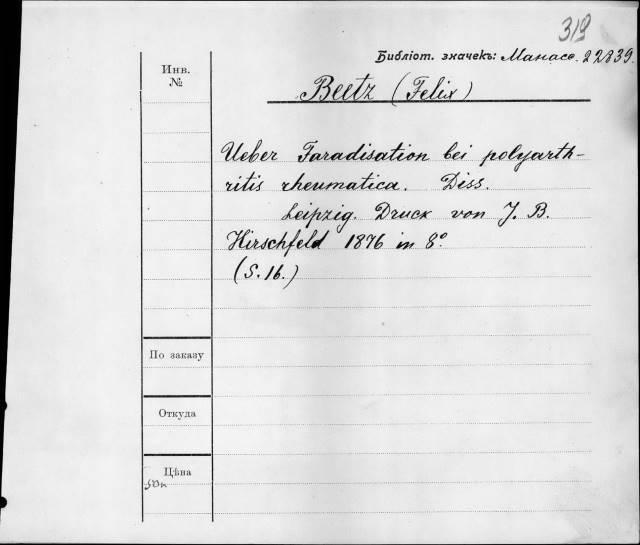 319
Библіот. значекъ: Манасе. 22839.
Инв.
№
Beetz (Felix)
Ueber Faradisation bei polyarth-
ritis rheumatica. Diss.
Leipzig. Druck von J. B.
Hirschfeld 1876 in 8°.
(S. 16.)
По заказу
Откуда
Цѣна